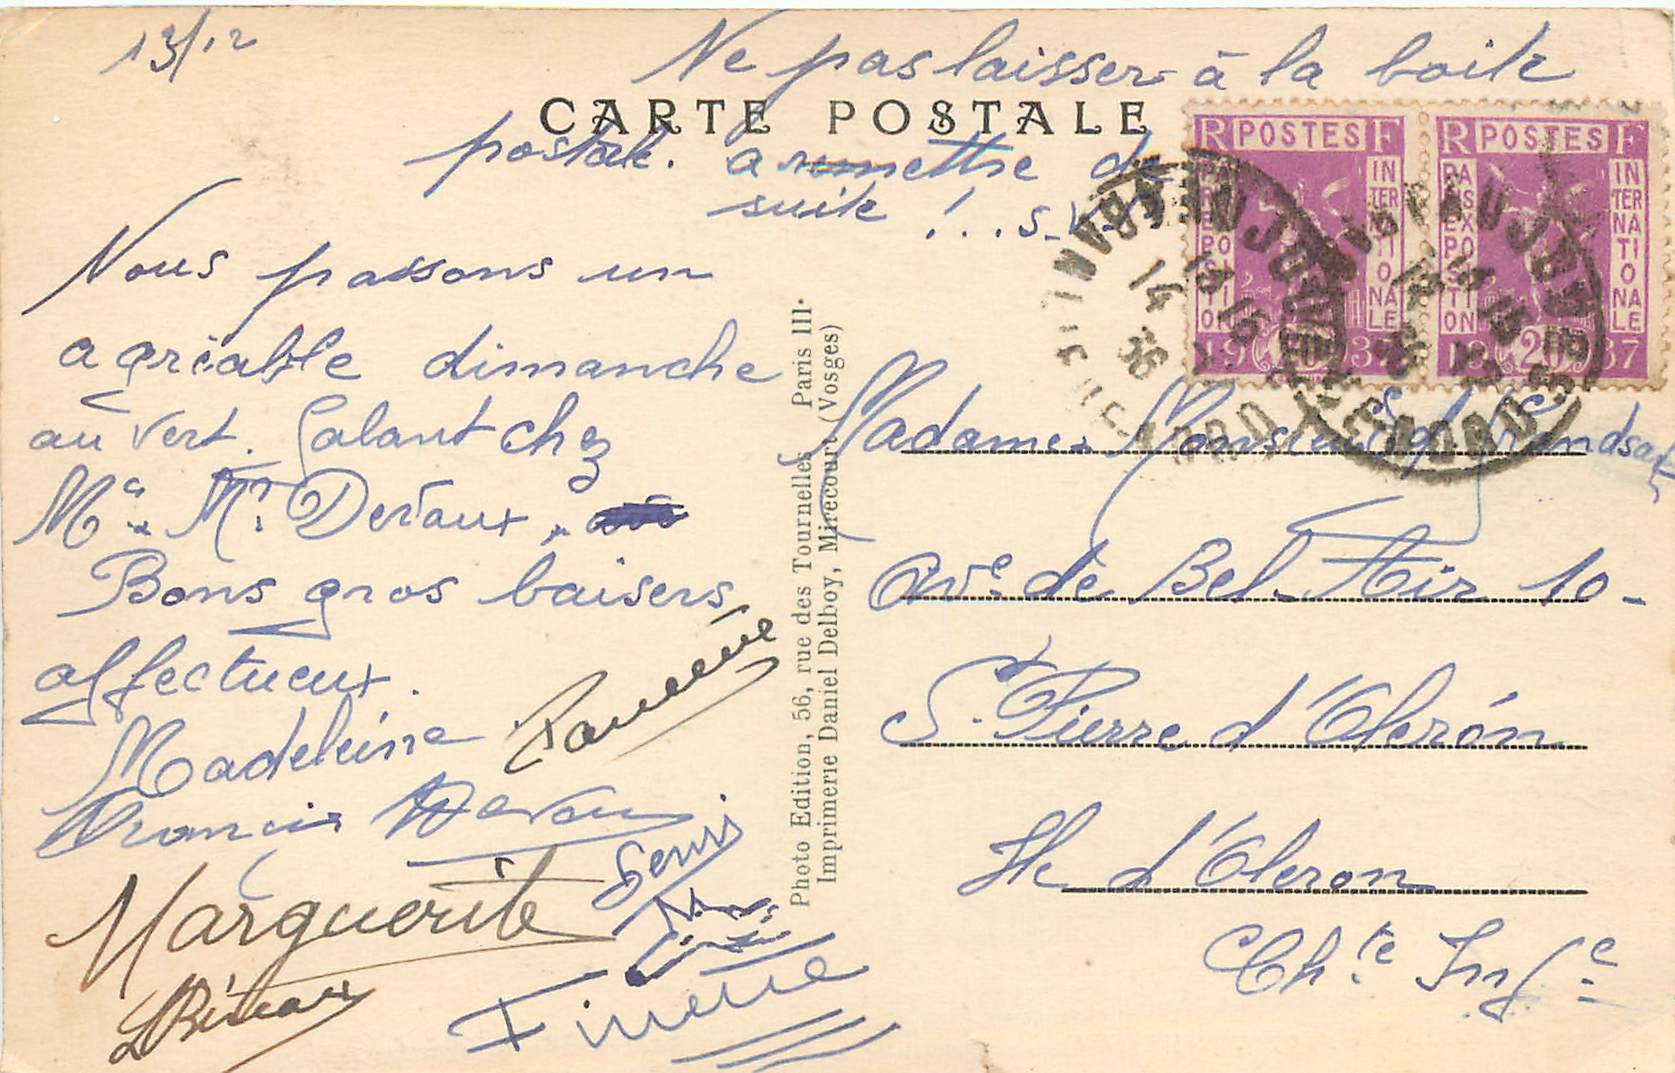 13/12
Ne pas laisser à la boite
CARTE POSTALE
postale. a remettre de
suite !.. s.v.p.
RF POSTES
PARIS EXPOSITION
INTERNATIONALE
1937
20
RF POSTES
PARIS EXPOSITION
INTERNATIONALE
1937
20
14
36
Nous passons un
agréable dimanche
au vert. Galant chez
Me. Mr. Devaux.
Bons gros baisers
affectueux.
Madeleine
Francis Devaux
Marguerite
Finette
Photo Edition, 56, rue des Tournelles, Paris III.
Imprimerie Daniel Delboy, Mirecourt (Vosges)
Madame. Monsieur
Ave. de Bel-Air 10-
St. Pierre d'Olerón
Ile d'Oleron
Chte Infe